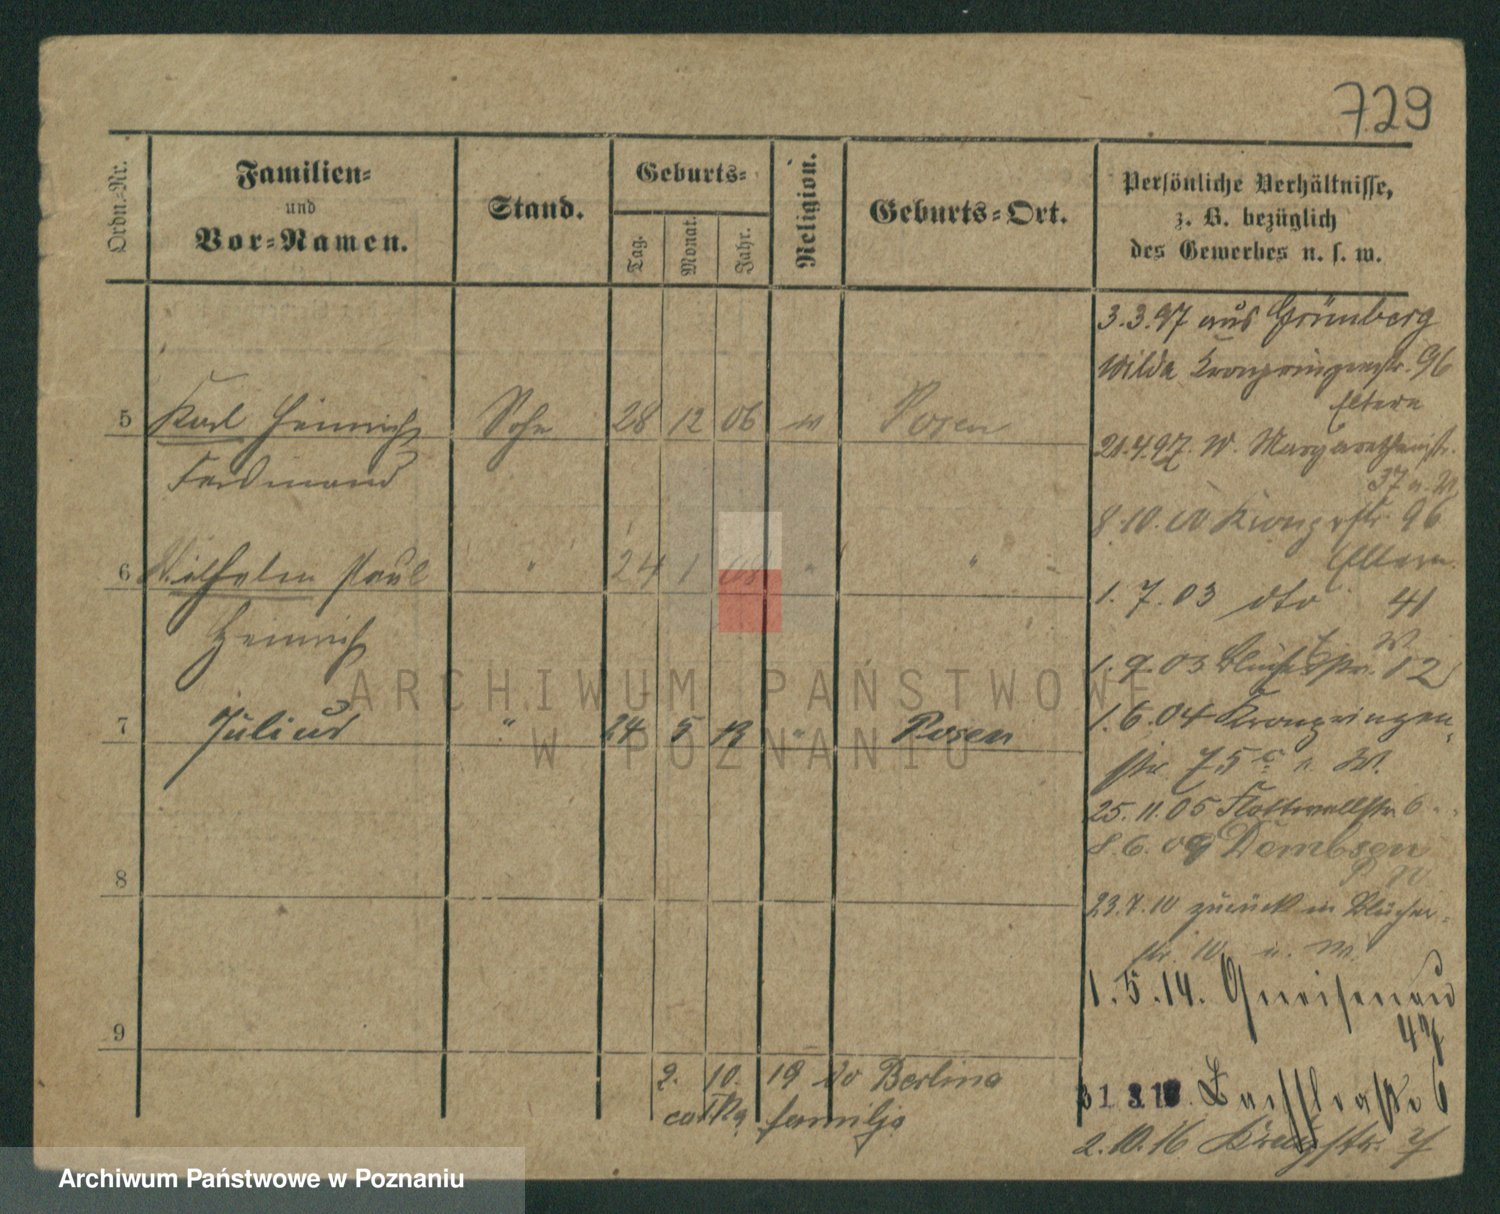 729
Ordn.-Nr.
Familien-
und
Vor-Namen.
Stand.
Geburts-
Tag.
Monat.
Jahr.
Religion.
Geburts-Ort.
Persönliche Verhältnisse,
z. B. bezüglich
des Gewerbes u. s. w.
3.3.97 aus Grünberg
Wilda Kronprinzenstr. 96
Eltern
5 Karl Heinrich Sohn 28 12 06 Posen
Ferdinand
21.4.97. W. Margarethenstr.
37
8.10. W Kronprstr 96
Eltern
6 Wilhelm Paul " 24 1 08 " "
Heinrich
1.7.03 dto 41
W.
1.9.03 12
7 Julius " 24 5 " Posen
1.6.04 Kronprinzen
str 75 W.
25.11.05 Flottwellstr 6
8.6.09 Dembsen
8
23.7.10 zurück in Blücher
str. 10
1.5.14. Gneisenau
47
9
2. 10. 19 do Berlina
całka familja
6
2.10.16
ARCHIWUM PAŃSTWOWE
W POZNANIU
Archiwum Państwowe w Poznaniu